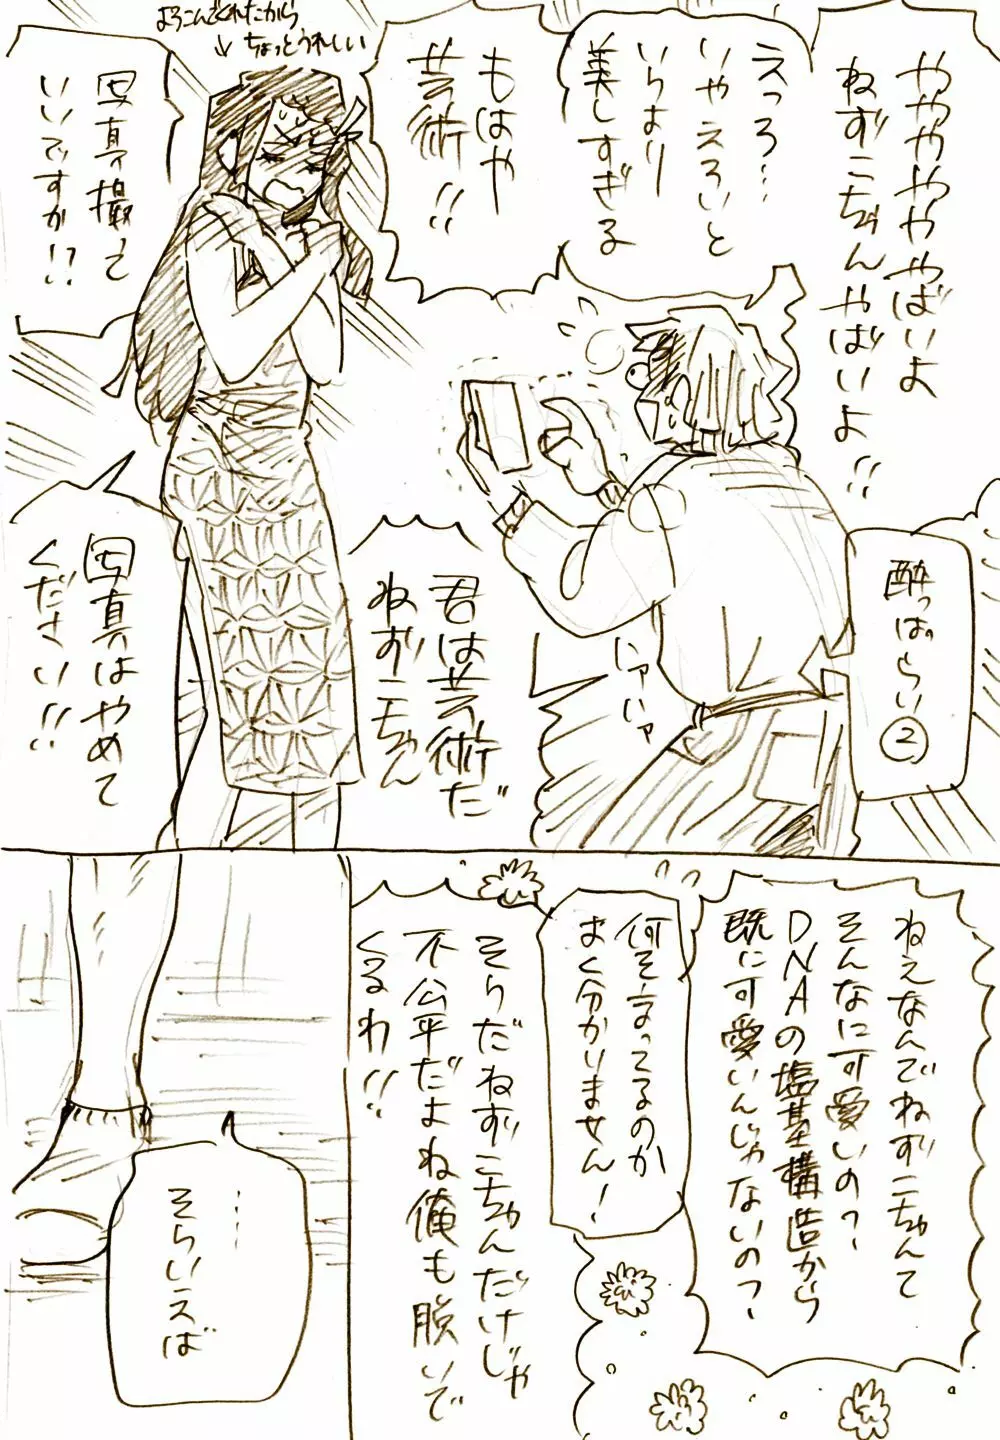 ややややややばいよ
ねずこちゃんやばいよ!!
えっろ…
いやえろいと
いうより
美しすぎる
もはや
芸術!!
よろこんでくれたから
ちょっとうれしい
写真撮って
いいですか!?
写真はやめて
ください!!
酔っぱらい②
ハァハァ
君は芸術だ
ねずこちゃん
ねえなんでねずこちゃんて
そんなに可愛いの?
DNAの塩基構造から
既に可愛いんじゃないの?
何を言ってるのか
よく分かりません!
そうだねずこちゃんだけじゃ
不公平だよね俺も脱いで
くるわ!!
……
そういえば